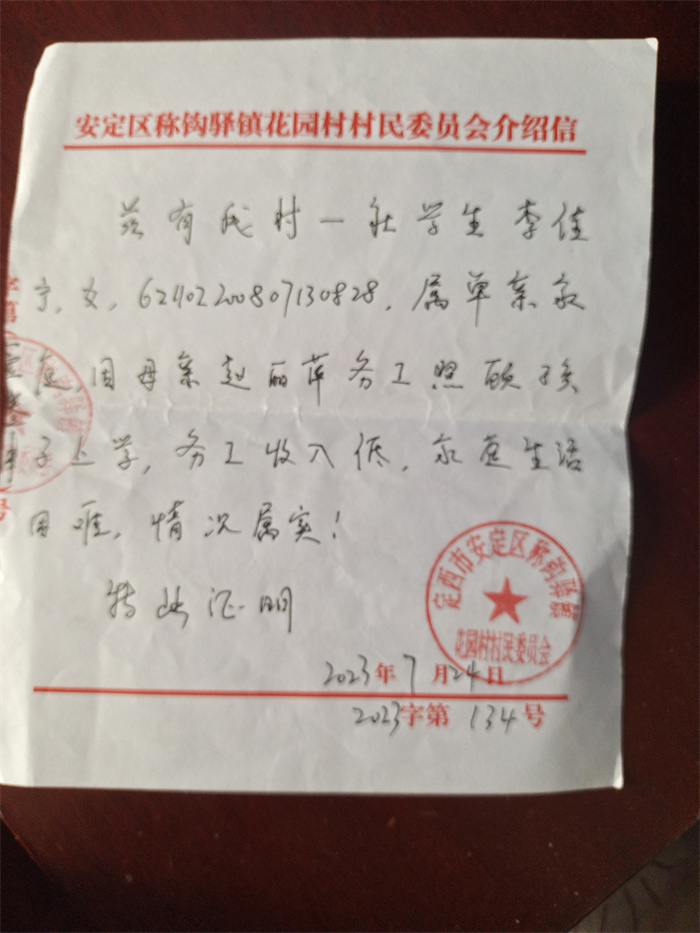 安定区称钩驿镇花园村村民委员会介绍信
兹有我村一社学生李佳
宁,女,621102200807130828,属单亲家
庭,因母亲赵丽萍务工照顾孩
子上学,务工收入低,家庭生活
困难,情况属实!
特此证明
定西市安定区称钩驿镇
花园村村民委员会
2023年7月24日
2023字第134号